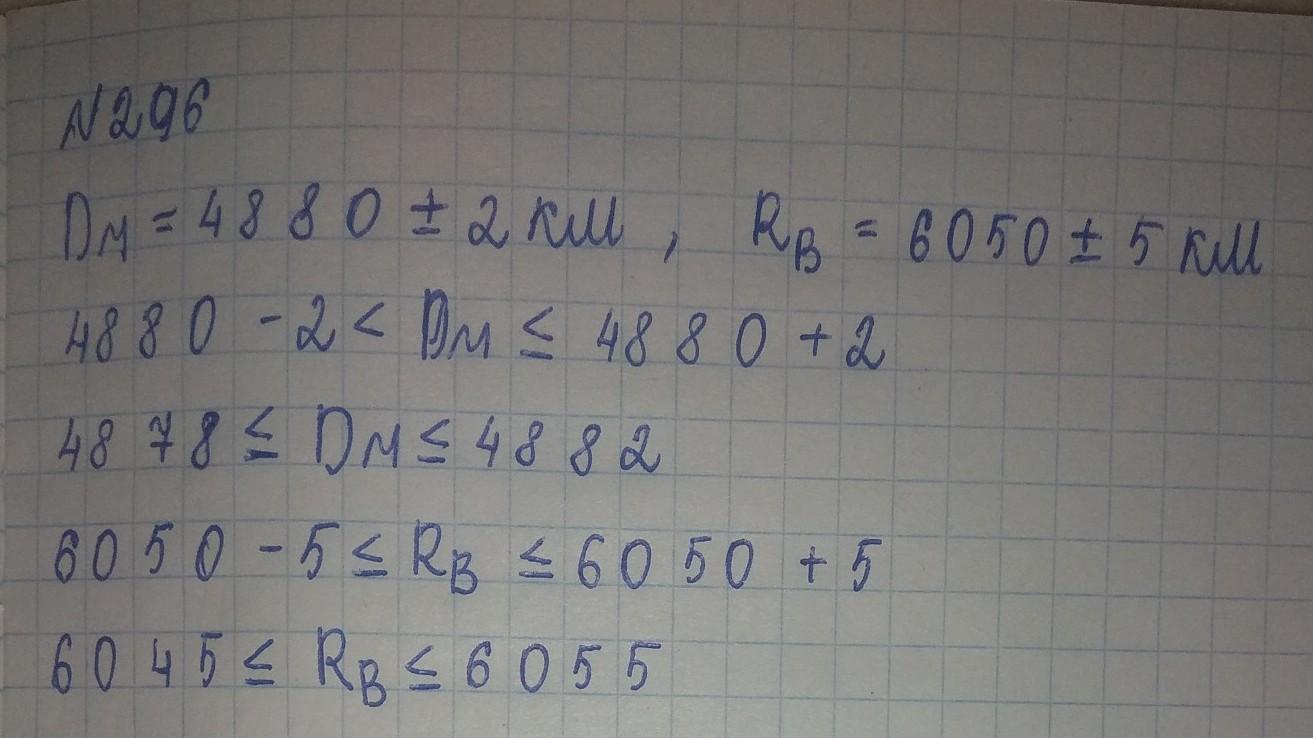 N296
Dм = 4880 ± 2 км, Rв = 6050 ± 5 км
4880 - 2 < Dм ≤ 4880 + 2
4878 ≤ Dм ≤ 4882
6050 - 5 ≤ Rв ≤ 6050 + 5
6045 ≤ Rв ≤ 6055